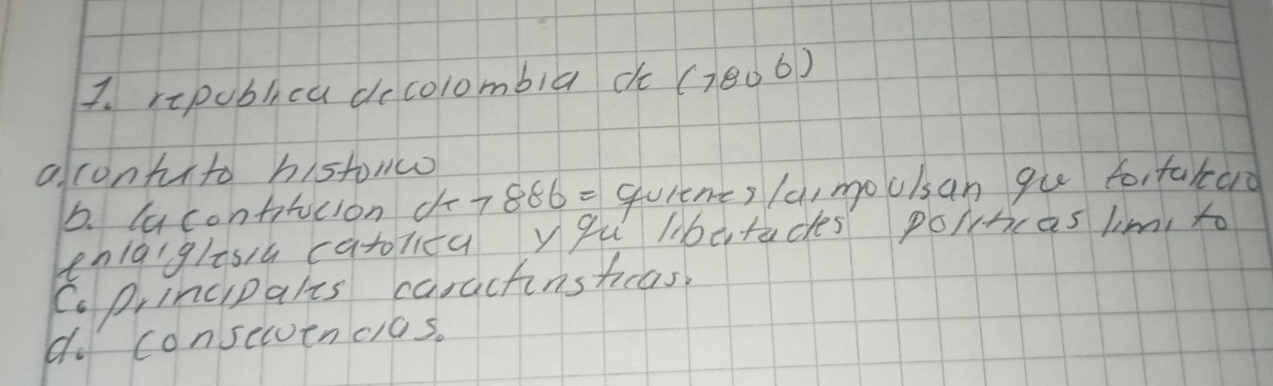 1. republica de colombia de (1806)
a. contexto historico
b. la contitucion de 1886 = quienes la impulsan que fortalecio
en la iglesia catolica y qu libertades politicas limito
c. principales caracteristicas.
d. consecuencias.